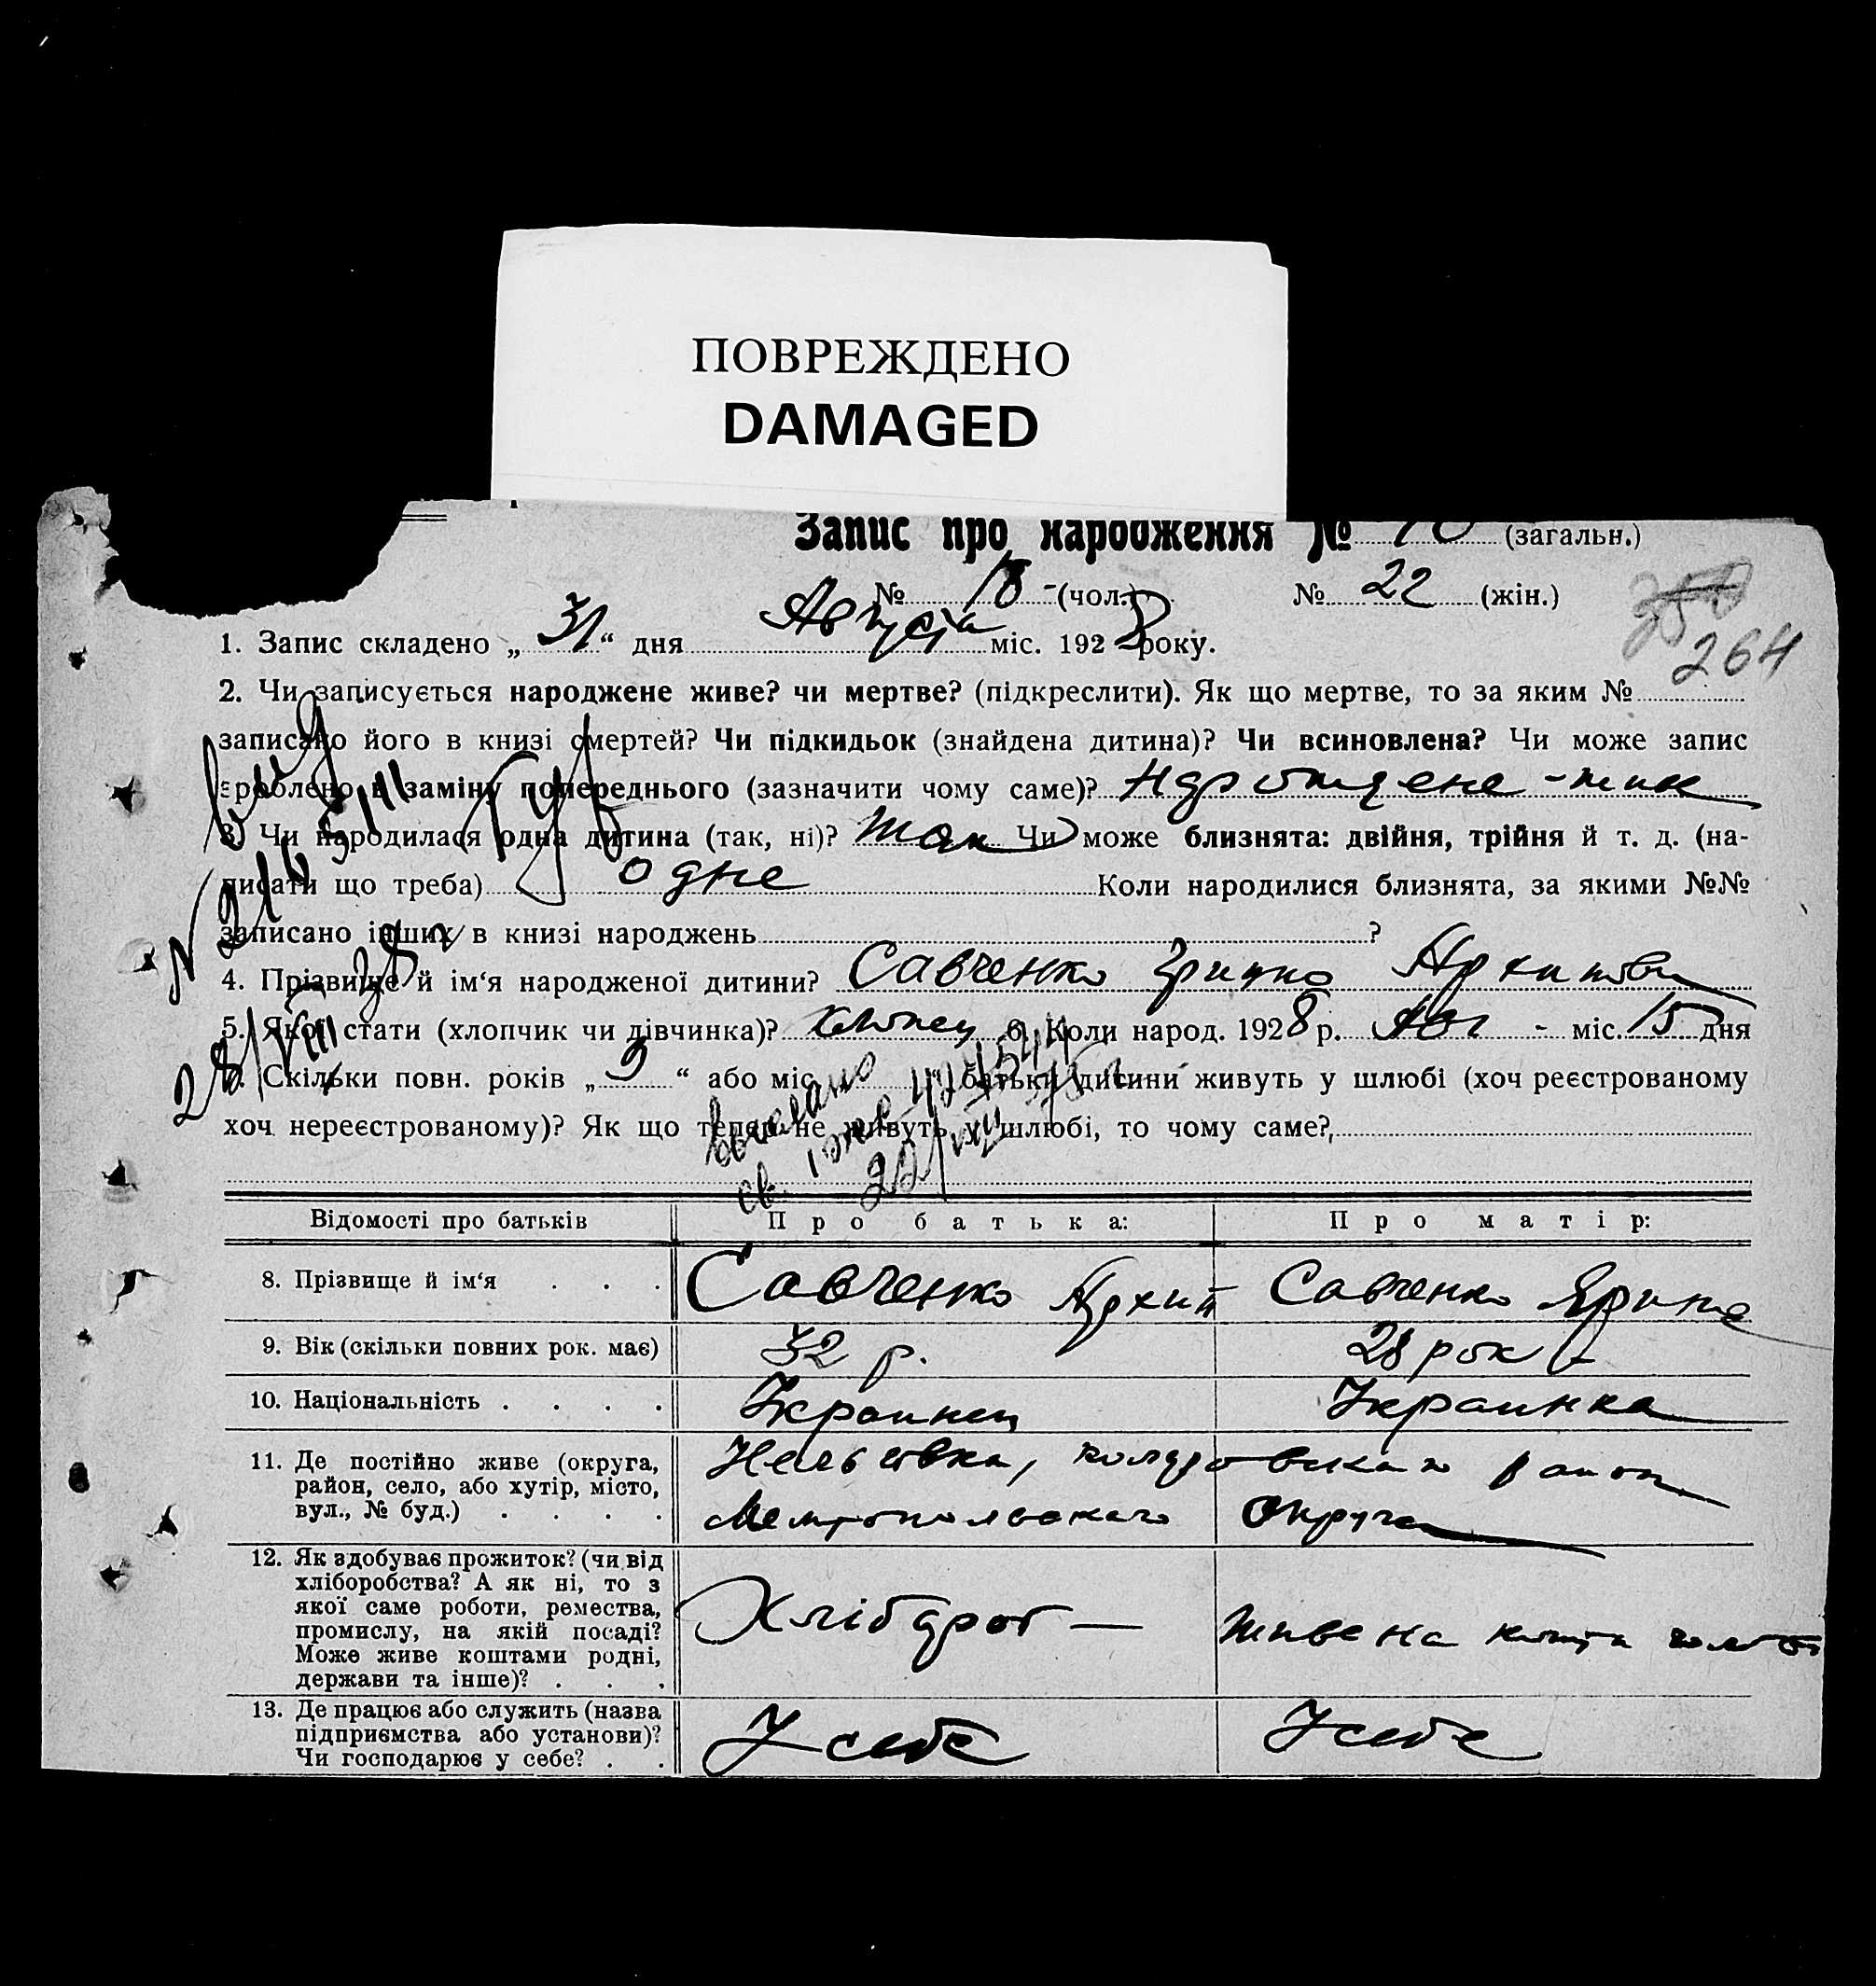 ПОВРЕЖДЕНО
DAMAGED
Запис про народження № (загальн.)
№ 18 - (чол.) № 22 (жін.)
350
264
1. Запис складено „ 31 “ дня Августа міс. 1928 року.
2. Чи записується народжене живе? чи мертве? (підкреслити). Як що мертве, то за яким №
записано його в книзі смертей? Чи підкидьок (знайдена дитина)? Чи всиновлена? Чи може запис
зроблено в заміну попереднього (зазначити чому саме)?
3. Чи народилася одна дитина (так, ні)? так Чи може близнята: двійня, трійня й т. д. (на-
писати що треба) одне Коли народилися близнята, за якими №№
записано інших в книзі народжень ?
4. Прізвище й ім‘я народженої дитини? Савченко Грицко Архипови
5. Якої стати (хлопчик чи дівчинка)? хлопец 6. Коли народ. 1928 р. Авг - міс. 15 дня
7. Скільки повн. років „ 9 “ або міс. „ “ батьки дитини живуть у шлюбі (хоч реєстрованому
хоч нереєстрованому)? Як що тепер не живуть у шлюбі, то чому саме?
Відомості про батьків Про батька: Про матір:
8. Прізвище й ім‘я . . . Савченко Архип Савченко Ярина
9. Вік (скільки повних рок. має) 32 р. 28 рок
10. Національність . . . . Украинец Украинка
11. Де постійно живе (округа,
район, село, або хутір, місто,
вул., № буд.) . . . .
Мелитопольського Округа
12. Як здобуває прожиток? (чи від
хліборобства? А як ні, то з
якої саме роботи, ремества,
промислу, на якій посаді?
Може живе коштами родні,
держави та інше)? . . .
Хлібороб — живе на
13. Де працює або служить (назва
підприємства або установи)?
Чи господарює у себе? . .
У себе У себе